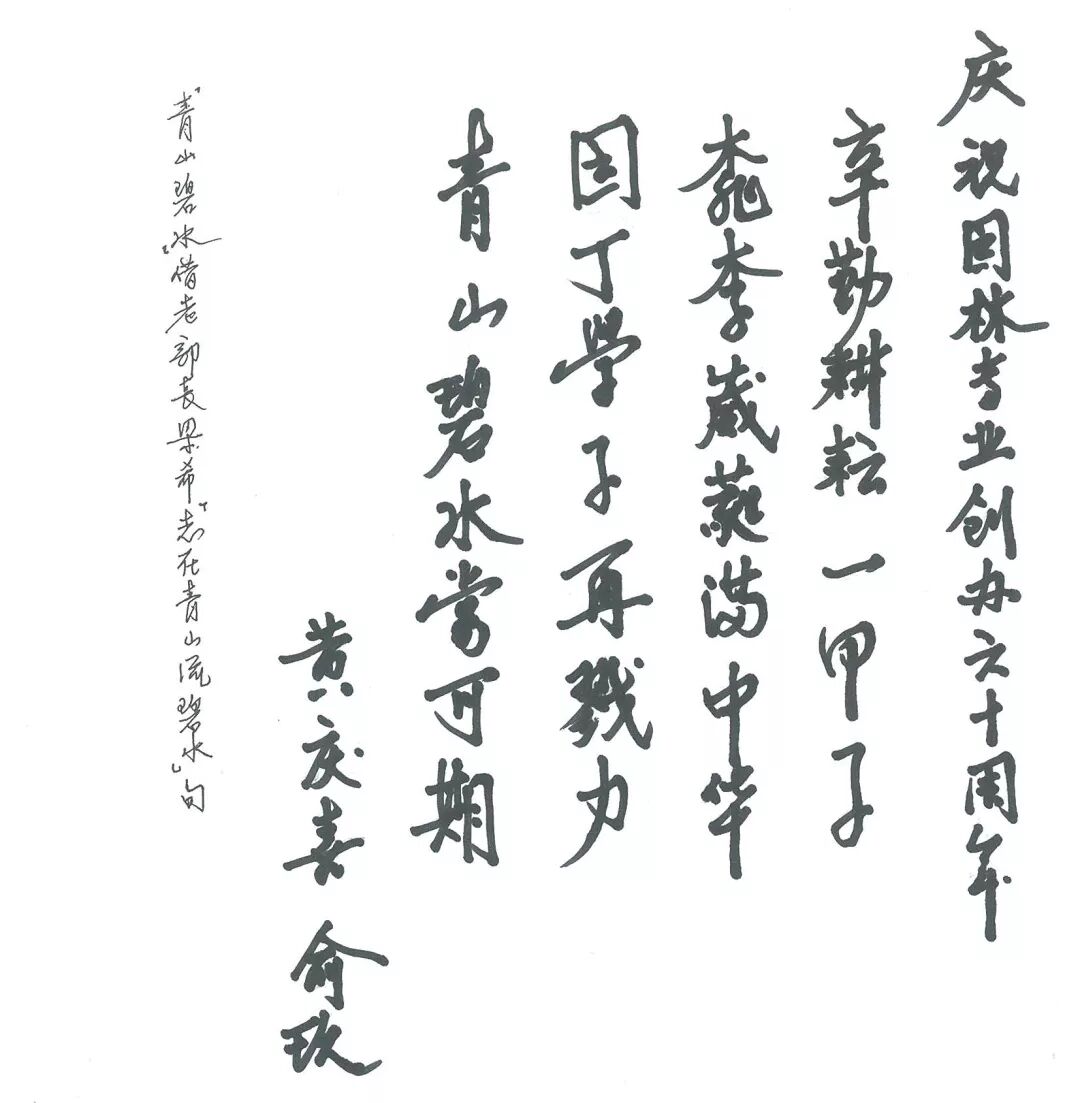 庆祝园林专业创办六十周年
辛勤耕耘一甲子
桃李葳蕤满中华
园丁学子再戮力
青山碧水当可期
黄庆喜 俞玖
"青山碧水"借老部长梁希"志在青山流碧水"句